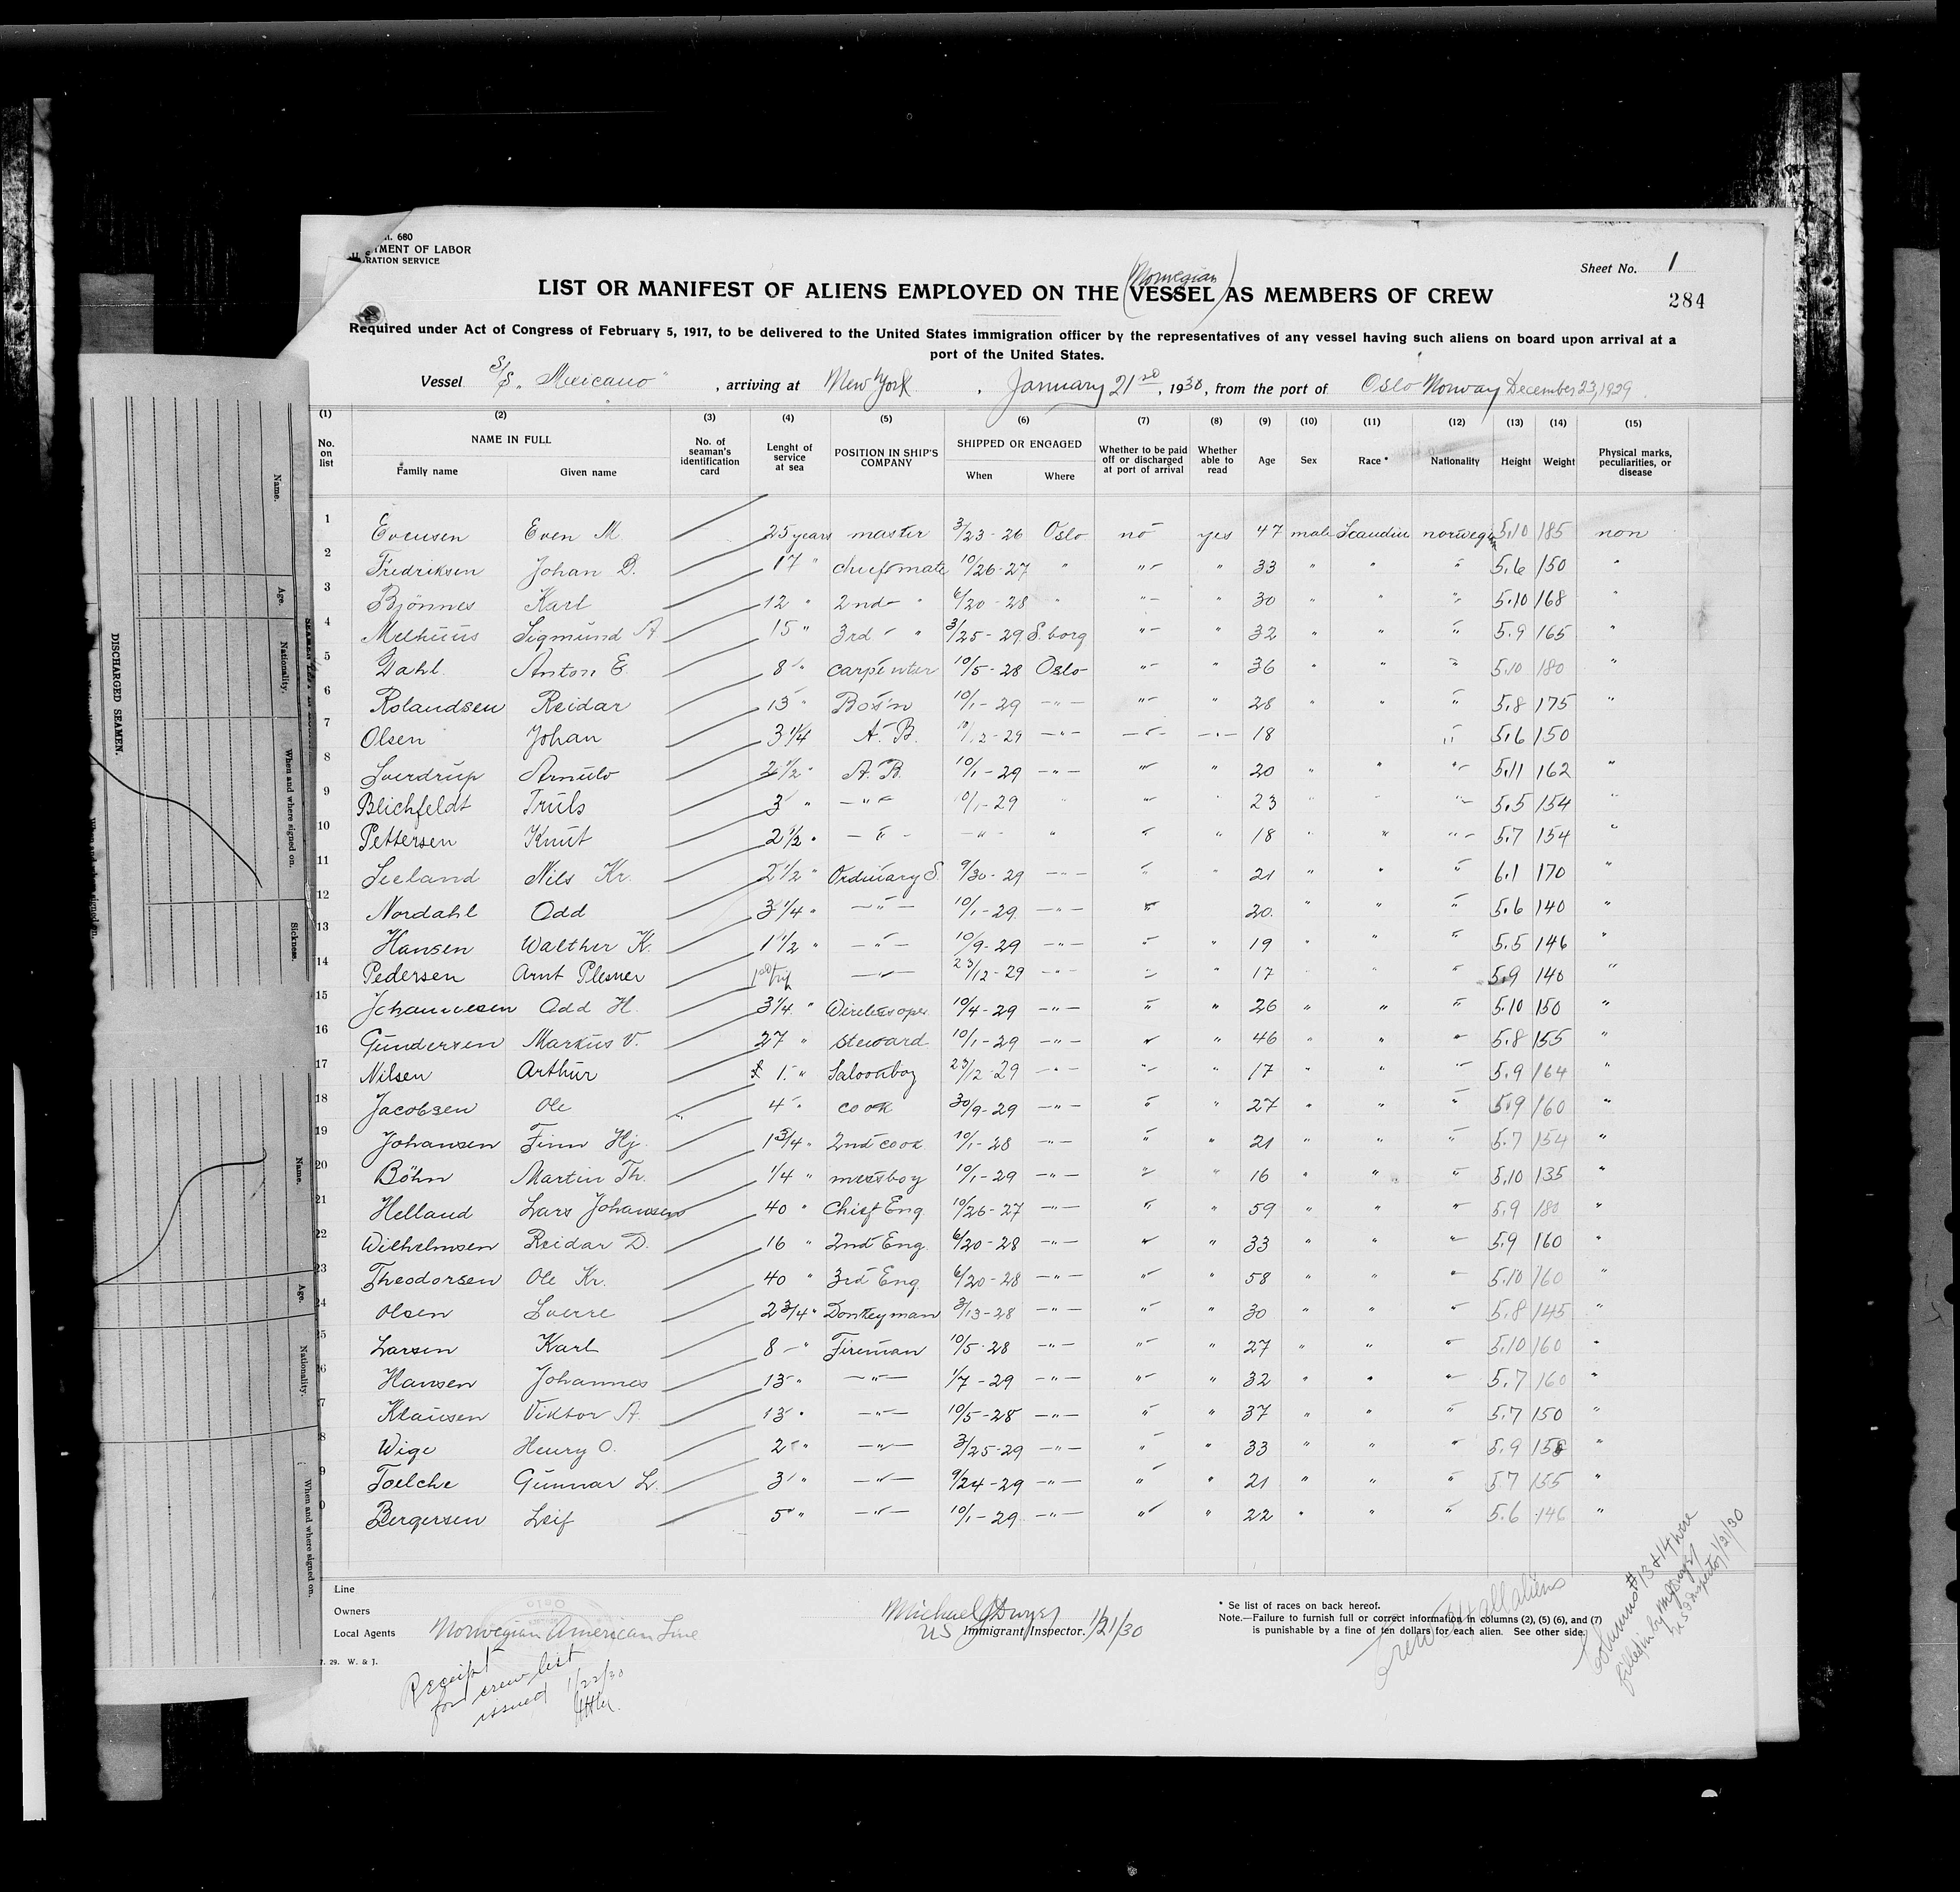 m. 680
TMENT OF LABOR
RATION SERVICE
Sheet No. 1
284
(Norwegian)
LIST OR MANIFEST OF ALIENS EMPLOYED ON THE VESSEL AS MEMBERS OF CREW
Required under Act of Congress of February 5, 1917, to be delivered to the United States immigration officer by the representatives of any vessel having such aliens on board upon arrival at a
port of the United States.
Vessel S/S „Mexicano" , arriving at New York , January 21 , 1930, from the port of Oslo Norway December 23, 1929
(1) (2) (3) (4) (5) (6) (7) (8) (9) (10) (11) (12) (13) (14) (15)
No. on list NAME IN FULL Family name Given name No. of seaman's identification card Lenght of service at sea POSITION IN SHIP'S COMPANY SHIPPED OR ENGAGED When Where Whether to be paid off or discharged at port of arrival Whether able to read Age Sex Race * Nationality Height Weight Physical marks, peculiarities, or disease
1 Evensen Even M. 25 years master 3/23-26 Oslo no yes 47 male Scandin norwegian 5.10 185 non
2 Fredriksen Johan D. 17 " chief mate 10/26-27 " " " 33 " " " 5.6 150 "
3 Bjönnes Karl 12 " 2nd " 6/20-28 " " " 30 " " " 5.10 168 "
4 Melhuus Sigmund A 15 " 3rd " 3/25-29 S.borg " " 32 " " " 5.9 165 "
5 Dahl Anton E. 8 " carpenter 10/5-28 Oslo " " 36 " " " 5.10 180 "
6 Rolandsen Reidar 13 " Bos'n 10/1-29 -"- " " 28 " " " 5.8 175 "
7 Olsen Johan 3 1/4 A. B. -29 -"- -"- -"- 18 " 5.6 150
8 Sverdrup Arnulv 2 1/2 " A. B. 10/1-29 -"- " " 20 " " " 5.11 162 "
9 Blichfeldt Truls 3 " -"- 10/1-29 " " " 23 " " " 5.5 154 "
10 Pettersen Knut 2 1/2 " -"- -"- " " " 18 " " " 5.7 154 "
11 Seeland Nils Kr. 2 1/2 " Ordinary S. 9/30-29 -"- " " 21 " " " 6.1 170 "
12 Nordahl Odd 3 1/4 " -"- 10/1-29 -"- " 20. " " " 5.6 140 "
13 Hansen Walther K. 1 1/2 " -"- 10/9-29 -"- " " 19 " " " 5.5 146 "
14 Pedersen Arnt Plesner 1st trip -"- 23/12-29 -"- " " 17 " " " 5.9 140 "
15 Johannesen Odd H. 3 1/4 " Wireless oper. 10/4-29 -"- " " 26 " " " 5.10 150 "
16 Gundersen Markus V. 27 " steward 10/1-29 -"- " " 46 " " " 5.8 155 "
17 Nilsen Arthur 1 " Saloonboy 23/12-29 -"- " " 17 " " " 5.9 164 "
18 Jacobsen Ole 4 " cook 30/9-29 -"- " " 27 " " " 5.9 160 "
19 Johansen Finn Hj. 1 3/4 " 2nd cook 10/1-28 -"- " " 21 " " " 5.7 154 "
20 Böhn Martin Th. 1/4 " messboy 10/1-29 -"- " " 16 " " " 5.10 135 "
21 Helland Lars Johansen 40 " Chief Eng 10/26-27 -"- " " 59 " " " 5.9 180 "
22 Wilhelmsen Reidar D. 16 " 2nd Eng. 6/20-28 -"- " " 33 " " " 5.9 160 "
23 Theodorsen Ole Kr. 40 " 3rd Eng. 6/20-28 -"- " " 58 " " " 5.10 160 "
24 Olsen Sverre 2 3/4 " Donkeyman 3/13-28 -"- " " 30 " " " 5.8 145 "
5 Larsen Karl 8 " Fireman 10/5-28 -"- " " 27 " " " 5.10 160 "
6 Hansen Johannes 13 " -"- 1/7-29 -"- " " 32 " " " 5.7 160 "
7 Klausen Viktor A. 13 " -"- 10/5-28 -"- " " 37 " " " 5.7 150 "
8 Wige Henry O. 2 " -"- 3/25-29 -"- " " 33 " " " 5.9 158 "
9 Toelche Gunnar L. 3 " -"- 9/24-29 -"- " " 21 " " " 5.7 155 "
0 Bergersen Leif 5 " -"- 10/1-29 -"- " " 22 " " " 5.6 146 "
Line
Owners
Local Agents Norwegian American Line
7. 29. W. & J.
Michael J Dwyer
US Immigrant Inspector. 1/21/30
* Se list of races on back hereof.
Note.—Failure to furnish full or correct information in columns (2), (5) (6), and (7)
is punishable by a fine of ten dollars for each alien. See other side.
Crew 34 all aliens
Columns # 13 & 14 were
filled in by
US Inspector 1/21/30
Receipt
for crew list
issued 1/22/30
DISCHARGED SEAMEN.
Name.
Age.
Nationality.
When and where signed on.
Sickness.
Name.
Age.
Nationality.
When and where signed on.